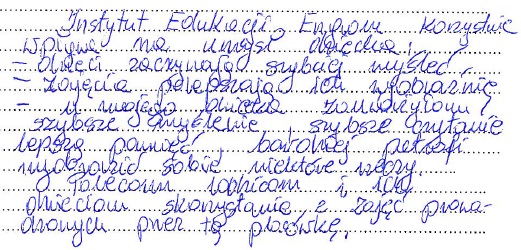 Instytut Edukacji Enpom korzystnie
wpływa na umysł dziecka,
– dzieci zaczynają szybciej myśleć,
– zajęcia polepszają ich wyobraźnię
– u mojego dziecka zauważyłam
szybsze myślenie, szybsze czytanie
lepsza pamięć, bardziej potrafi
wyobrazić sobie niektóre rzeczy.
Polecam rodzicom i ich
dzieciom skorzystanie z zajęć prowa-
dzonych przez tą placówkę.